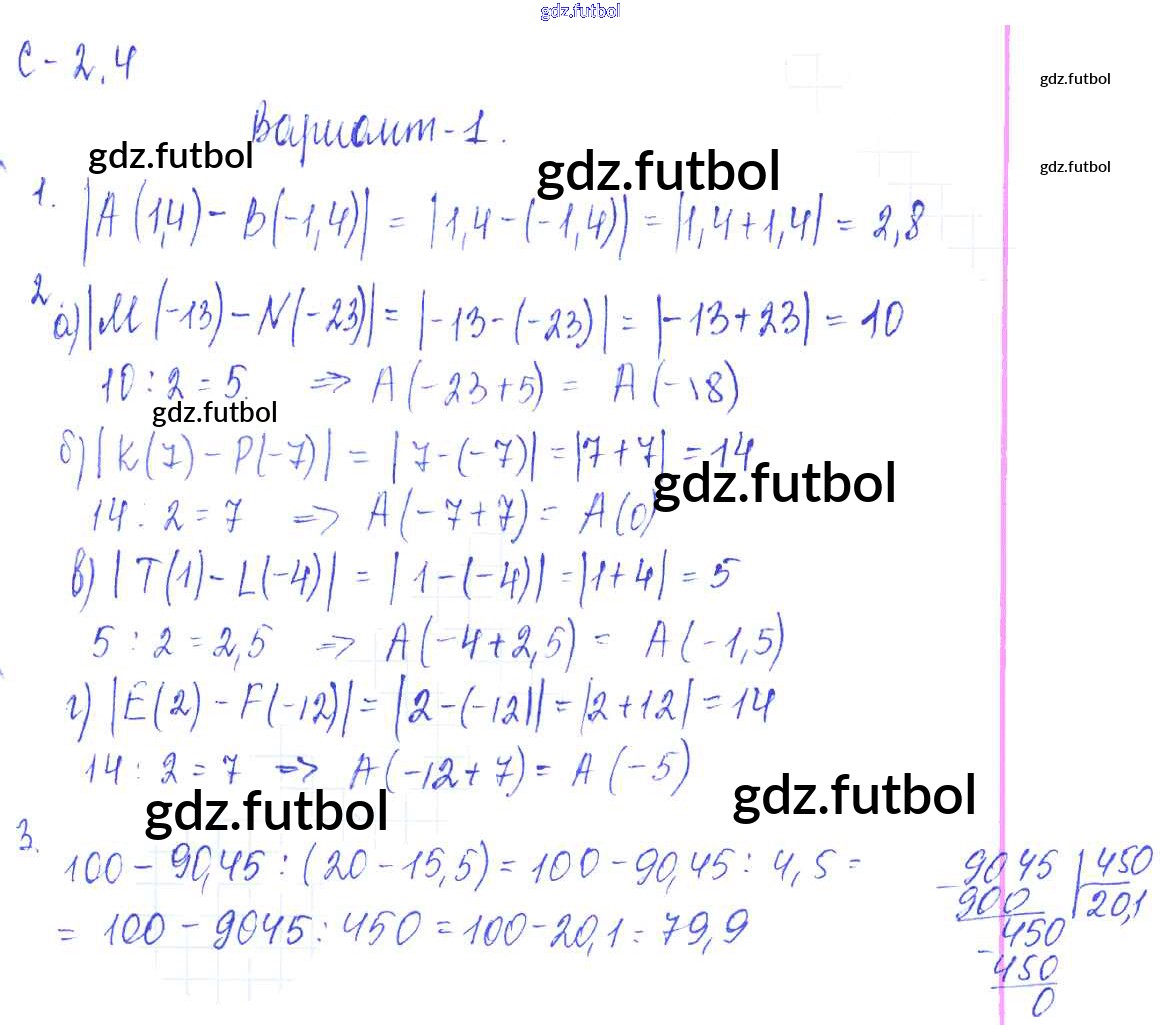 gdz.futbol
С - 2.4
gdz.futbol
Вариант - 1.
gdz.futbol
gdz.futbol
gdz.futbol
1. |A(1,4) - B(-1,4)| = |1,4 - (-1,4)| = |1,4 + 1,4| = 2,8
2. а) |M(-13) - N(-23)| = |-13 - (-23)| = |-13 + 23| = 10
10 : 2 = 5. => A(-23 + 5) = A(-18)
gdz.futbol
б) |K(7) - P(-7)| = |7 - (-7)| = |7 + 7| = 14
gdz.futbol
14 : 2 = 7 => A(-7 + 7) = A(0)
в) |T(1) - L(-4)| = |1 - (-4)| = |1 + 4| = 5
5 : 2 = 2,5 => A(-4 + 2,5) = A(-1,5)
г) |E(2) - F(-12)| = |2 - (-12)| = |2 + 12| = 14
14 : 2 = 7 => A(-12 + 7) = A(-5)
gdz.futbol
gdz.futbol
3. 100 - 90,45 : (20 - 15,5) = 100 - 90,45 : 4,5 =
= 100 - 9045 : 450 = 100 - 20,1 = 79,9
- 9045 | 450
900 | 20,1
- 450
450
0